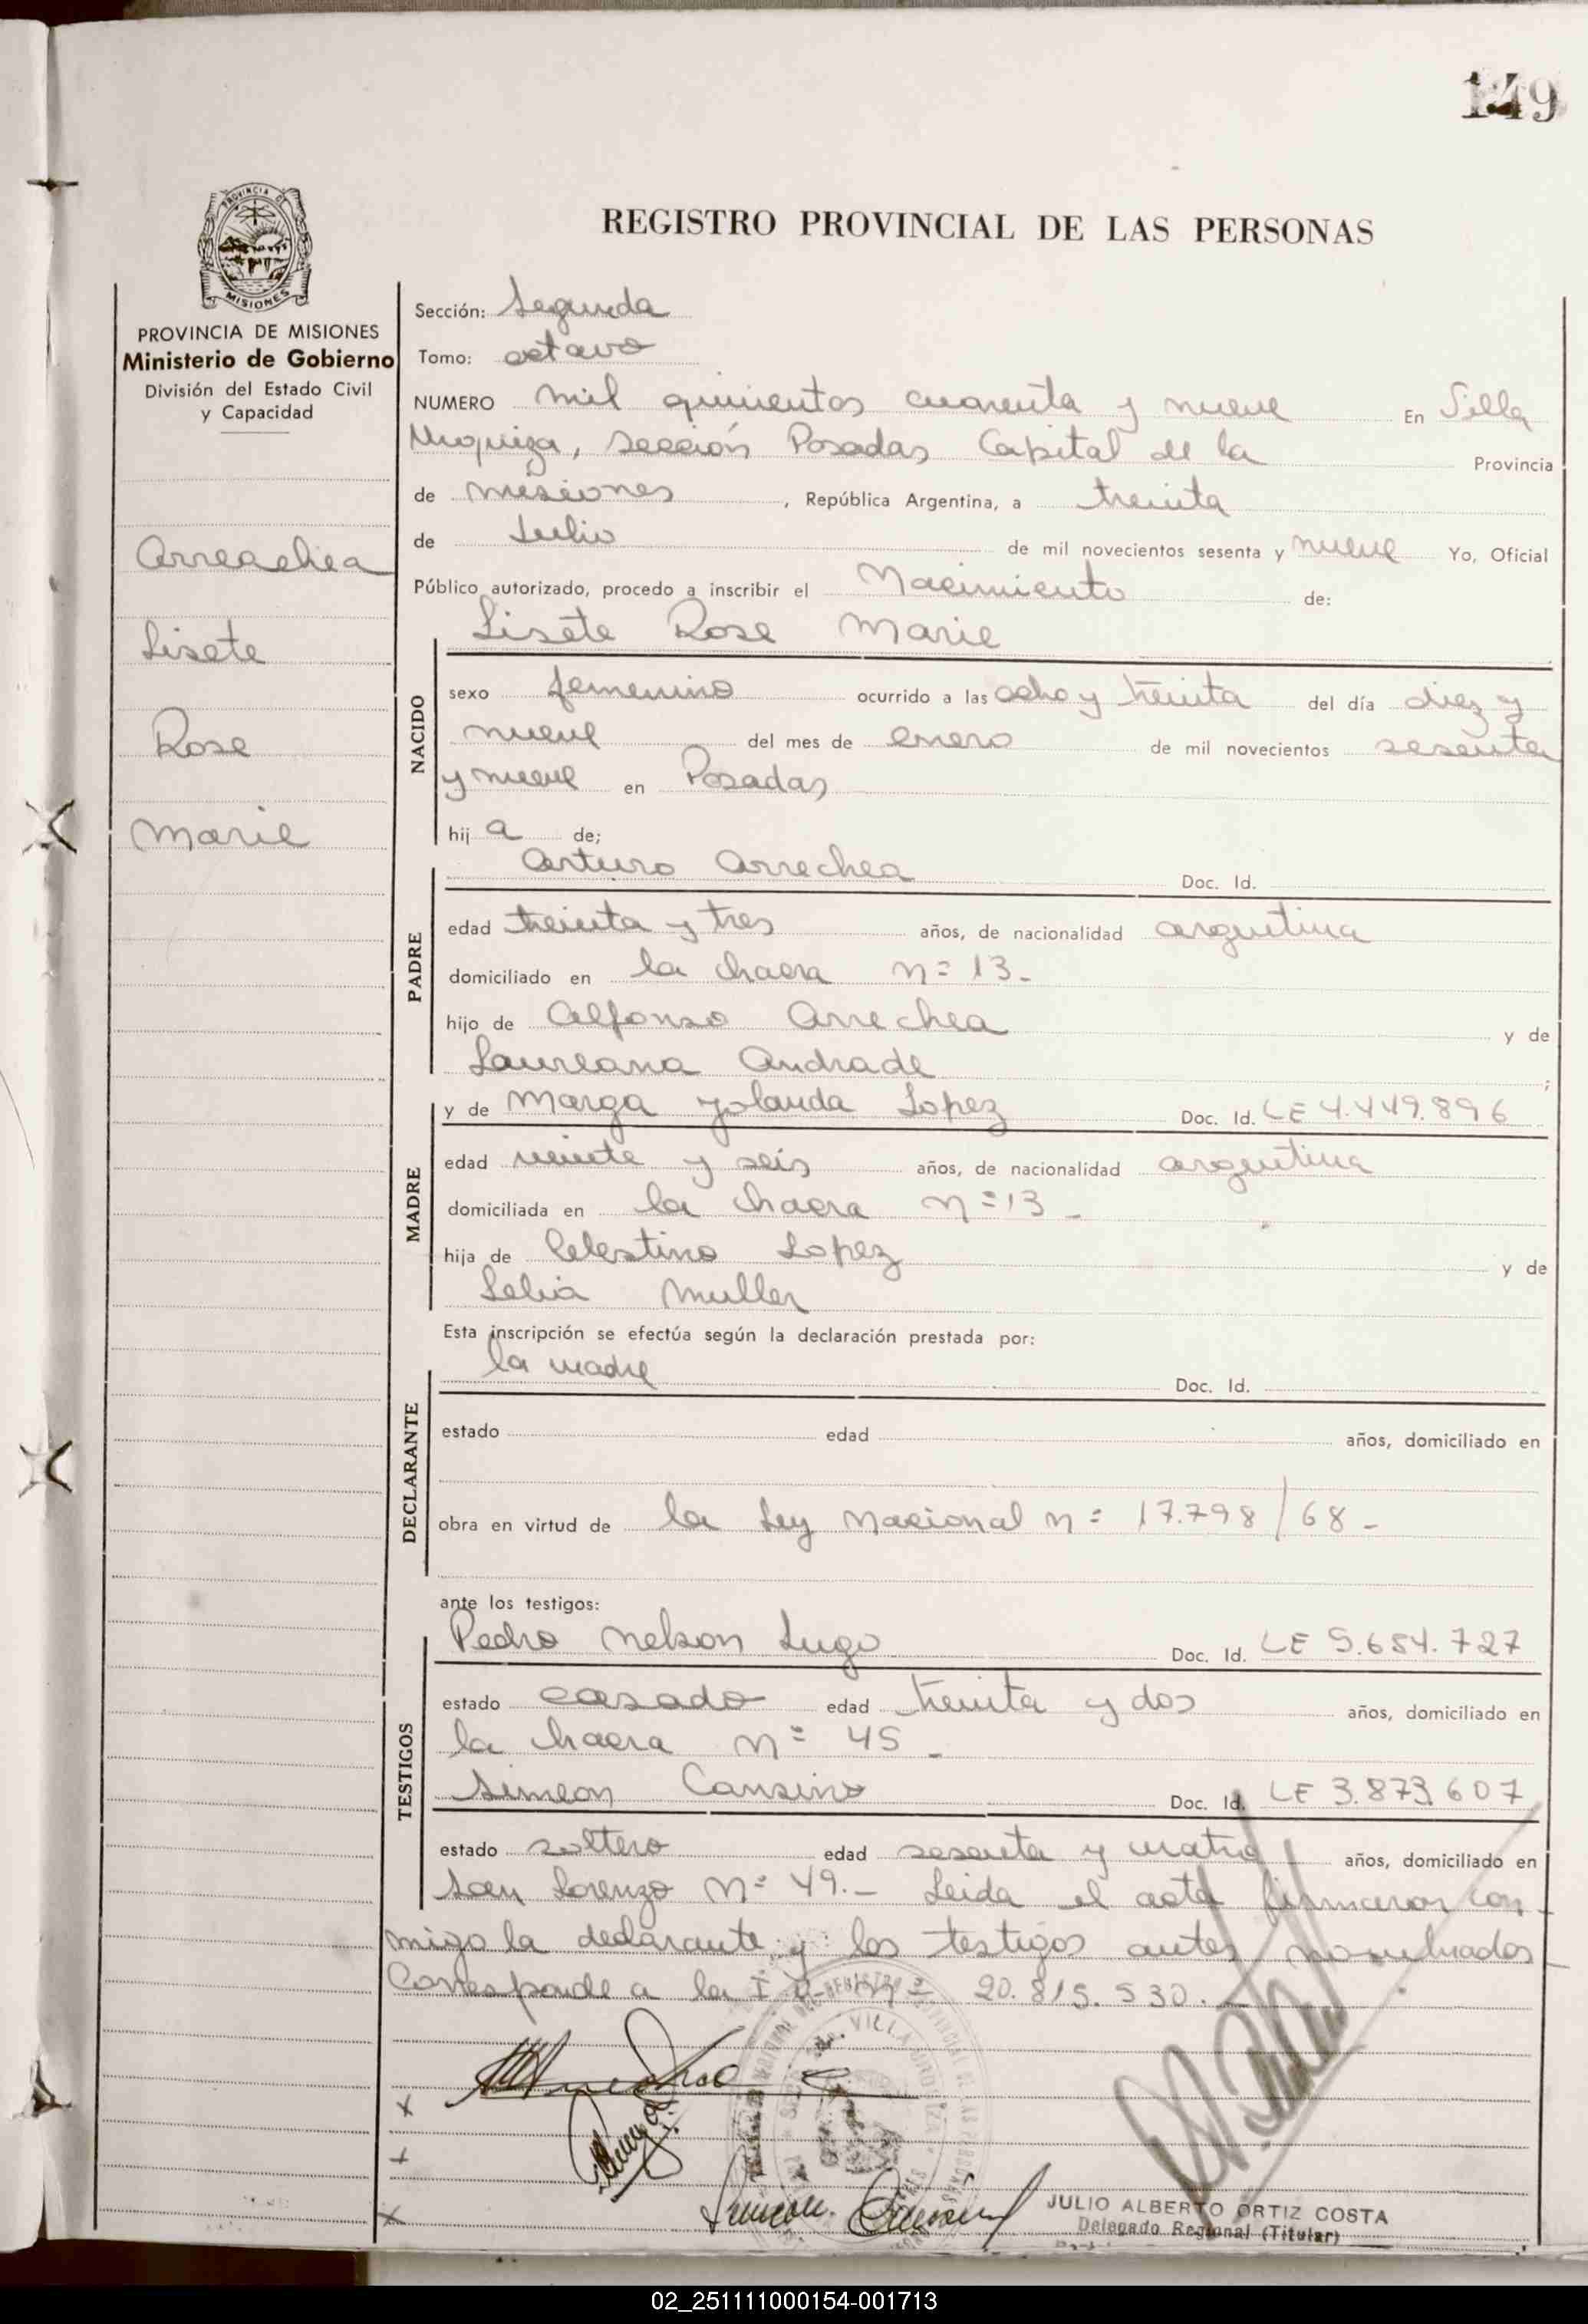 149
REGISTRO PROVINCIAL DE LAS PERSONAS
PROVINCIA DE MISIONES
Ministerio de Gobierno
División del Estado Civil
y Capacidad
Arreachea
Lisete
Rose
Marie
Sección: Segunda
Tomo: octavo
NUMERO mil quinientos cuarenta y nueve En Villa
Urquiza, sección Posadas Capital de la Provincia
de misiones, República Argentina, a treinta
de Julio de mil novecientos sesenta y nueve Yo, Oficial
Público autorizado, procedo a inscribir el Nacimiento de:
Lisete Rose Marie
NACIDO
sexo femenino ocurrido a las ocho y treinta del día diez y
nueve del mes de enero de mil novecientos sesenta
y nueve en Posadas
hij a de;
PADRE
Arturo Arrechea Doc. Id.
edad treinta y tres años, de nacionalidad argentina
domiciliado en la chacra nº 13-
hijo de Alfonso Arrechea y de
Laureana Andrade ;
MADRE
y de Marga Yolanda Lopez Doc. Id. LE 4.449.896
edad veinte y seis años, de nacionalidad argentina
domiciliada en la chacra nº 13-
hija de Celestino Lopez y de
Lelia Muller
Esta inscripción se efectúa según la declaración prestada por:
DECLARANTE
la madre Doc. Id.
estado edad años, domiciliado en
obra en virtud de la Ley Nacional nº 17.798/68-
ante los testigos:
TESTIGOS
Pedro Nelson Lugo Doc. Id. LE 5.684.727
estado casado edad treinta y dos años, domiciliado en
la chacra nº 45-
Simeon Cansino Doc. Id. LE 3.873.607
estado soltero edad sesenta y cuatro años, domiciliado en
San Lorenzo Nº 49.- Leida el acta firmaron con-
migo la declarante y los testigos antes nombrados
Corresponde a la I.D. nº 20.815.530.-
JULIO ALBERTO ORTIZ COSTA
Delegado Regional (Titular)
02_251111000154-001713